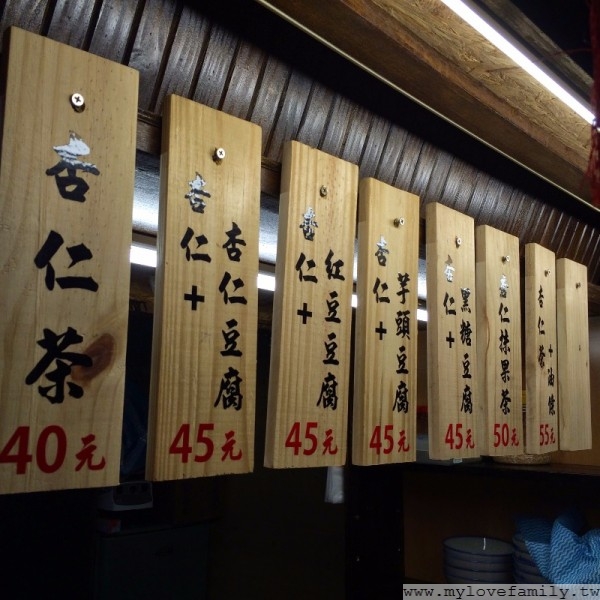 杏仁茶
40元
杏仁+
杏仁豆腐
45元
杏仁+
紅豆豆腐
45元
杏仁+
芋頭豆腐
45元
杏仁+
黑糖豆腐
45元
杏仁抹果茶
50元
杏仁茶
+油條
55元
www.mylovefamily.tw